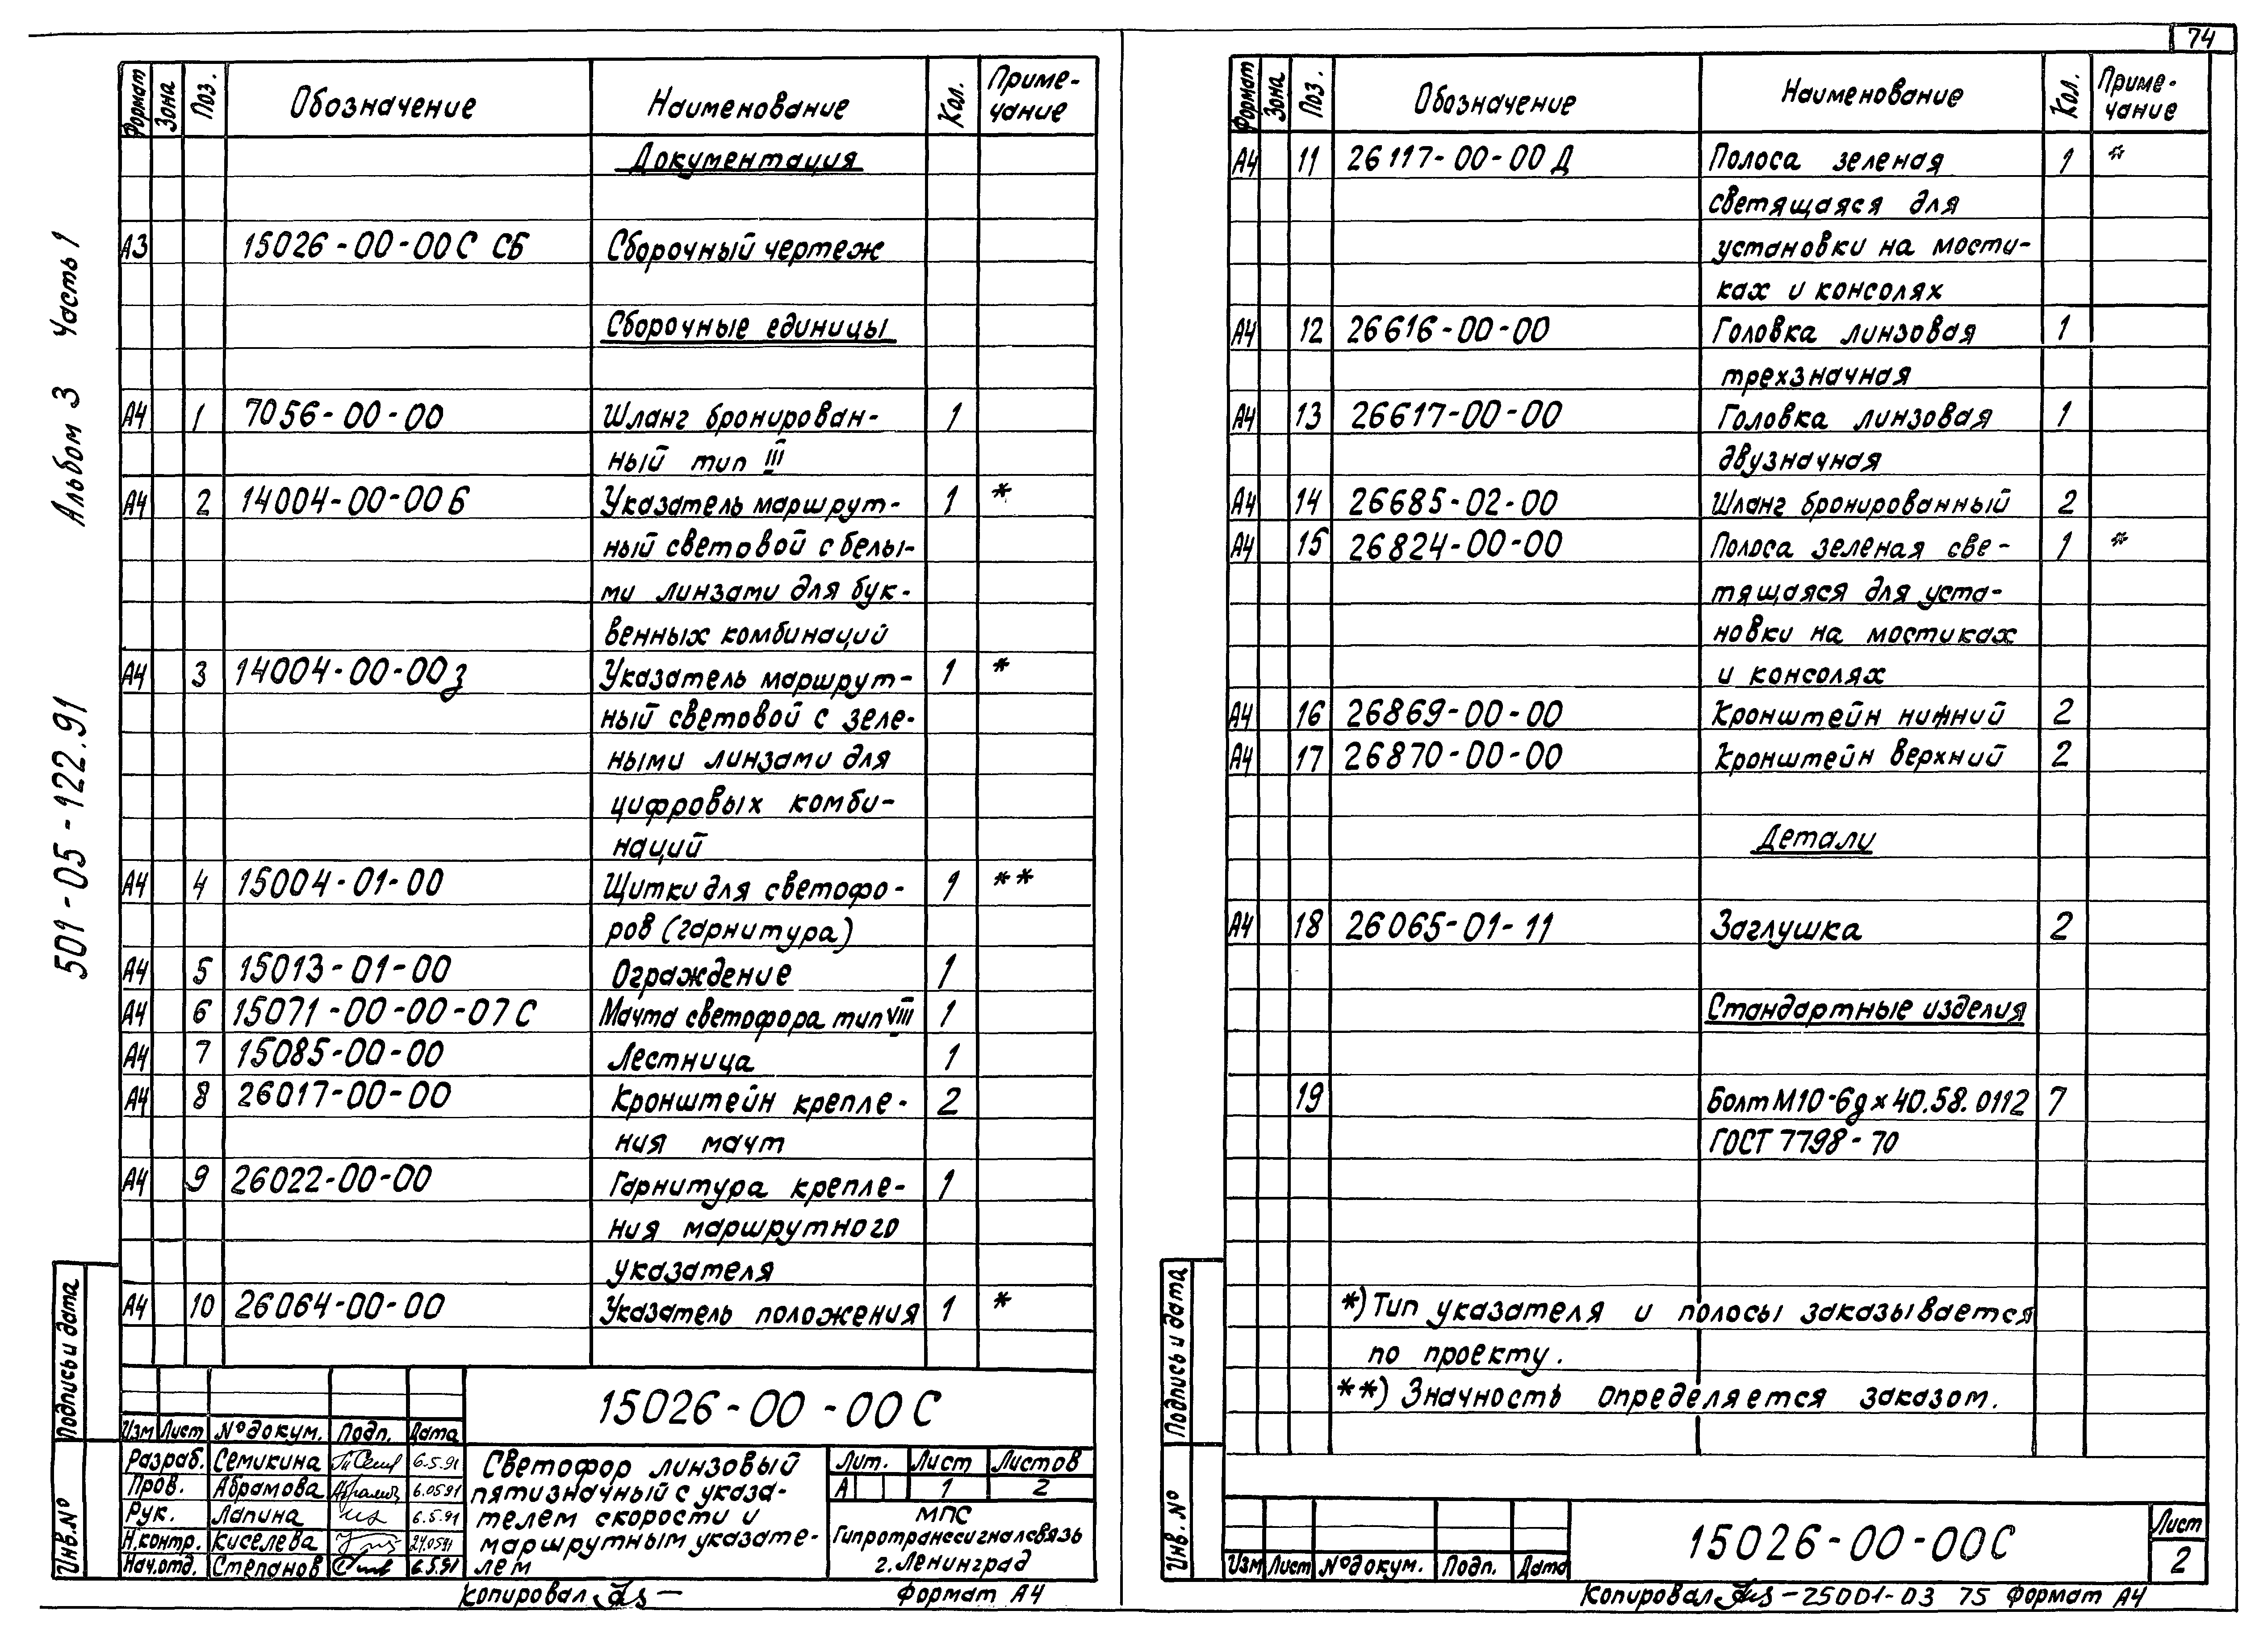 74
Альбом 3 Часть 1
501-05-122.91
Формат Зона Поз. Обозначение Наименование Кол. Приме-
чание
Документация
А3 15026-00-00С СБ Сборочный чертеж
Сборочные единицы
А4 1 7056-00-00 Шланг бронирован- 1
ный тип III
А4 2 14004-00-00Б Указатель маршрут- 1 *
ный световой с белы-
ми линзами для бук-
венных комбинаций
А4 3 14004-00-00з Указатель маршрут- 1 *
ный световой с зеле-
ными линзами для
цифровых комби-
наций
А4 4 15004-01-00 Щитки для светофо- 1 **
ров (гарнитура)
А4 5 15013-01-00 Ограждение 1
А4 6 15071-00-00-07С Мачта светофора тип VIII 1
А4 7 15085-00-00 Лестница 1
А4 8 26017-00-00 Кронштейн крепле- 2
ния мачт
А4 9 26022-00-00 Гарнитура крепле- 1
ния маршрутного
указателя
А4 10 26064-00-00 Указатель положения 1 *
Подпись и дата
Инв. №
15026-00-00С
Изм Лист № докум. Подп. Дата
Разраб. Семикина 6.5.91
Пров. Абрамова 6.05.91
Рук. Лапина 6.5.91
Н.контр. Киселева 24.05.91
Нач.отд. Степанов 6.5.91
Светофор линзовый
пятизначный с указа-
телем скорости и
маршрутным указате-
лем
Лит. Лист Листов
А 1 2
МПС
Гипротранссигналсвязь
г. Ленинград
Копировал Формат А4
Формат Зона Поз. Обозначение Наименование Кол. Приме-
чание
А4 11 26117-00-00 Д Полоса зеленая 1 *
светящаяся для
установки на мости-
ках и консолях
А4 12 26616-00-00 Головка линзовая 1
трехзначная
А4 13 26617-00-00 Головка линзовая 1
двузначная
А4 14 26685-02-00 Шланг бронированный 2
А4 15 26824-00-00 Полоса зеленая све- 1 *
тящаяся для уста-
новки на мостиках
и консолях
А4 16 26869-00-00 Кронштейн нижний 2
А4 17 26870-00-00 Кронштейн верхний 2
Детали
А4 18 26065-01-11 Заглушка 2
Стандартные изделия
19 Болт М10-6g х 40.58.0112 7
ГОСТ 7798-70
*) Тип указателя и полосы заказывается
по проекту.
**) Значность определяется заказом.
Подпись и дата
Инв. №
Изм Лист № докум. Подп. Дата
15026-00-00С
Лист
2
Копировал - 25001-03 75 Формат А4